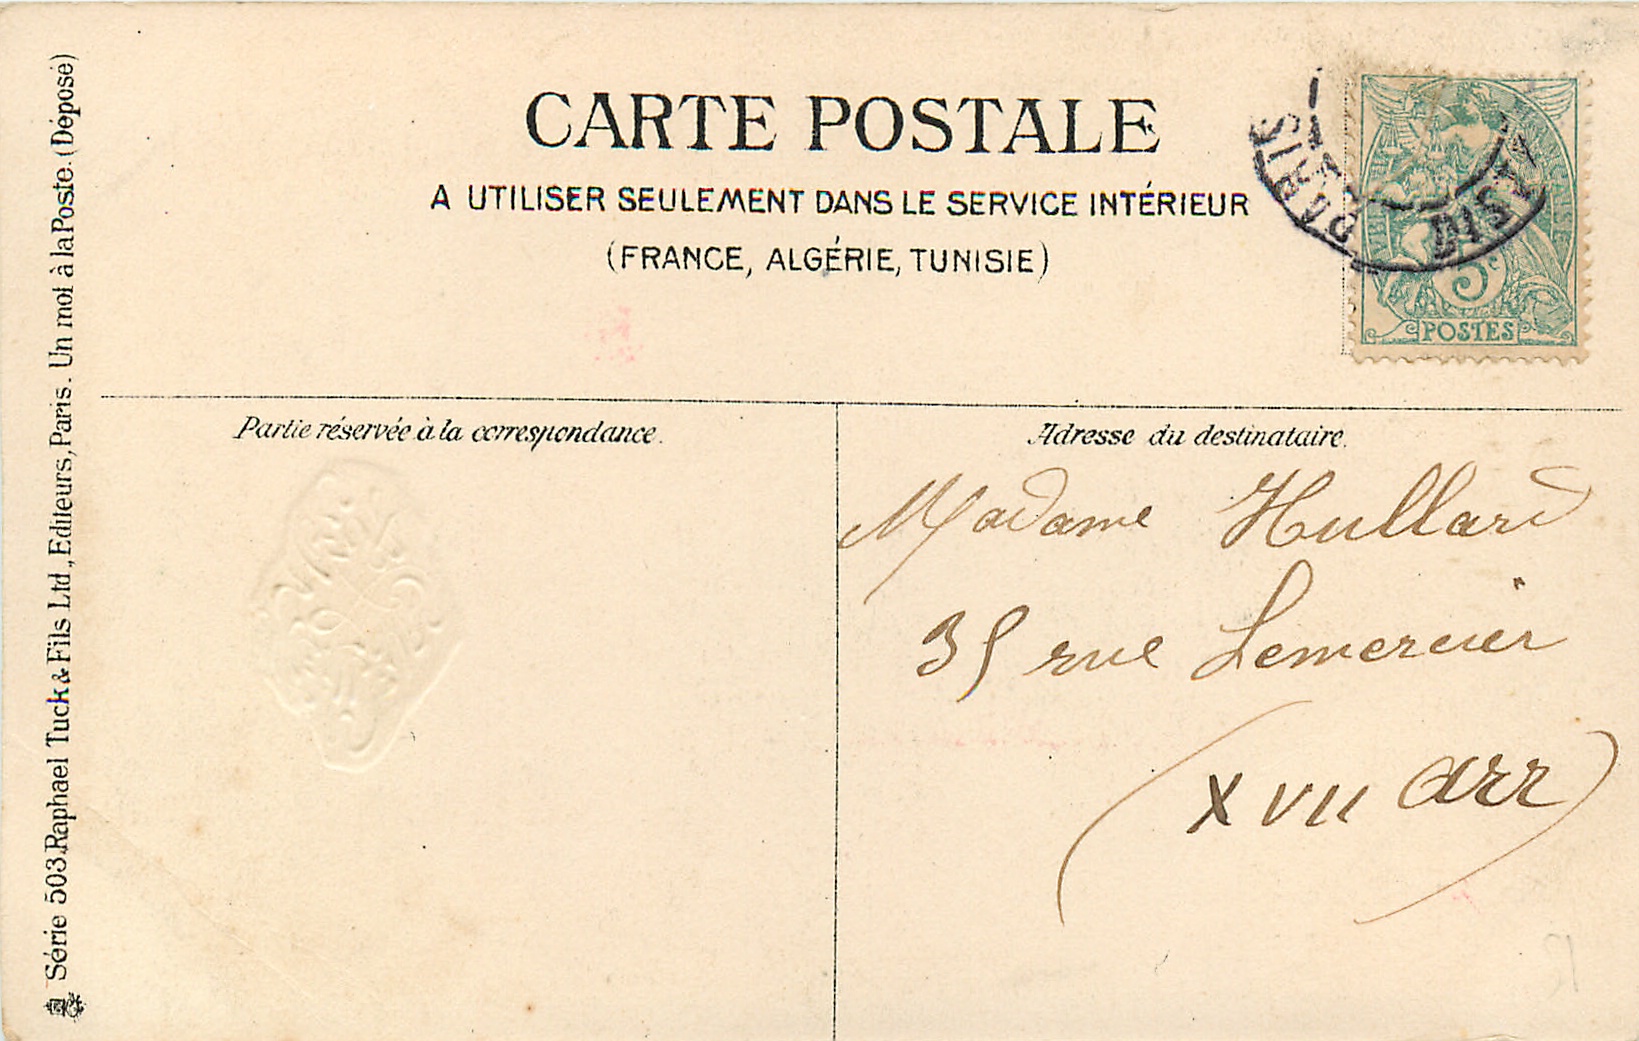 CARTE POSTALE
A UTILISER SEULEMENT DANS LE SERVICE INTÉRIEUR
(FRANCE, ALGÉRIE, TUNISIE)
PARIS
DISTRI
5c
POSTES
Partie réservée à la correspondance.
Adresse du destinataire.
Madame Hullard
35 rue Lemercier
(XVII arr)
Série 503. Raphael Tuck & Fils Ltd, Editeurs, Paris. Un mot à la Poste. (Déposé)